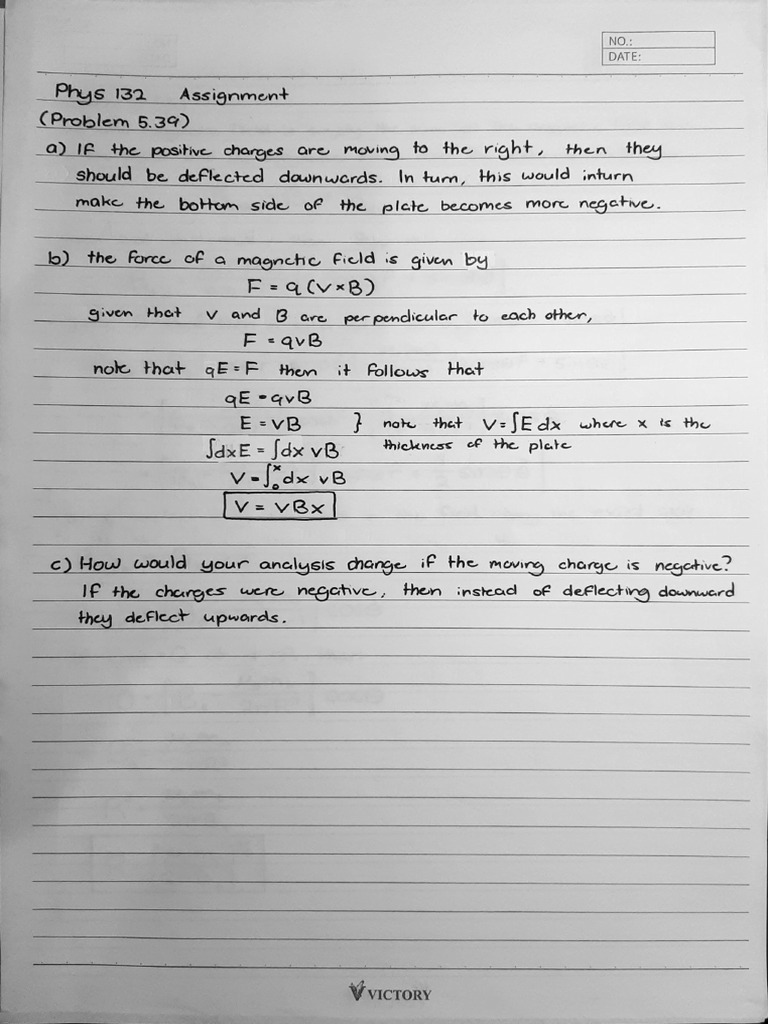 NO.:
DATE:
Phys 132 Assignment
(Problem 5.39)
a) If the positive charges are moving to the right, then they
should be deflected downwards. In turn, this would inturn
make the bottom side of the plate becomes more negative.
b) the force of a magnetic field is given by
F = q (V × B)
given that v and B are perpendicular to each other,
F = qvB
note that qE = F then it follows that
qE = qvB
E = vB } note that V = ∫E dx where x is the
∫dxE = ∫dx vB thickness of the plate
V = ∫₀ˣ dx vB
V = vBx
c) How would your analysis change if the moving charge is negative?
If the charges were negative, then instead of deflecting downward
they deflect upwards.
VICTORY